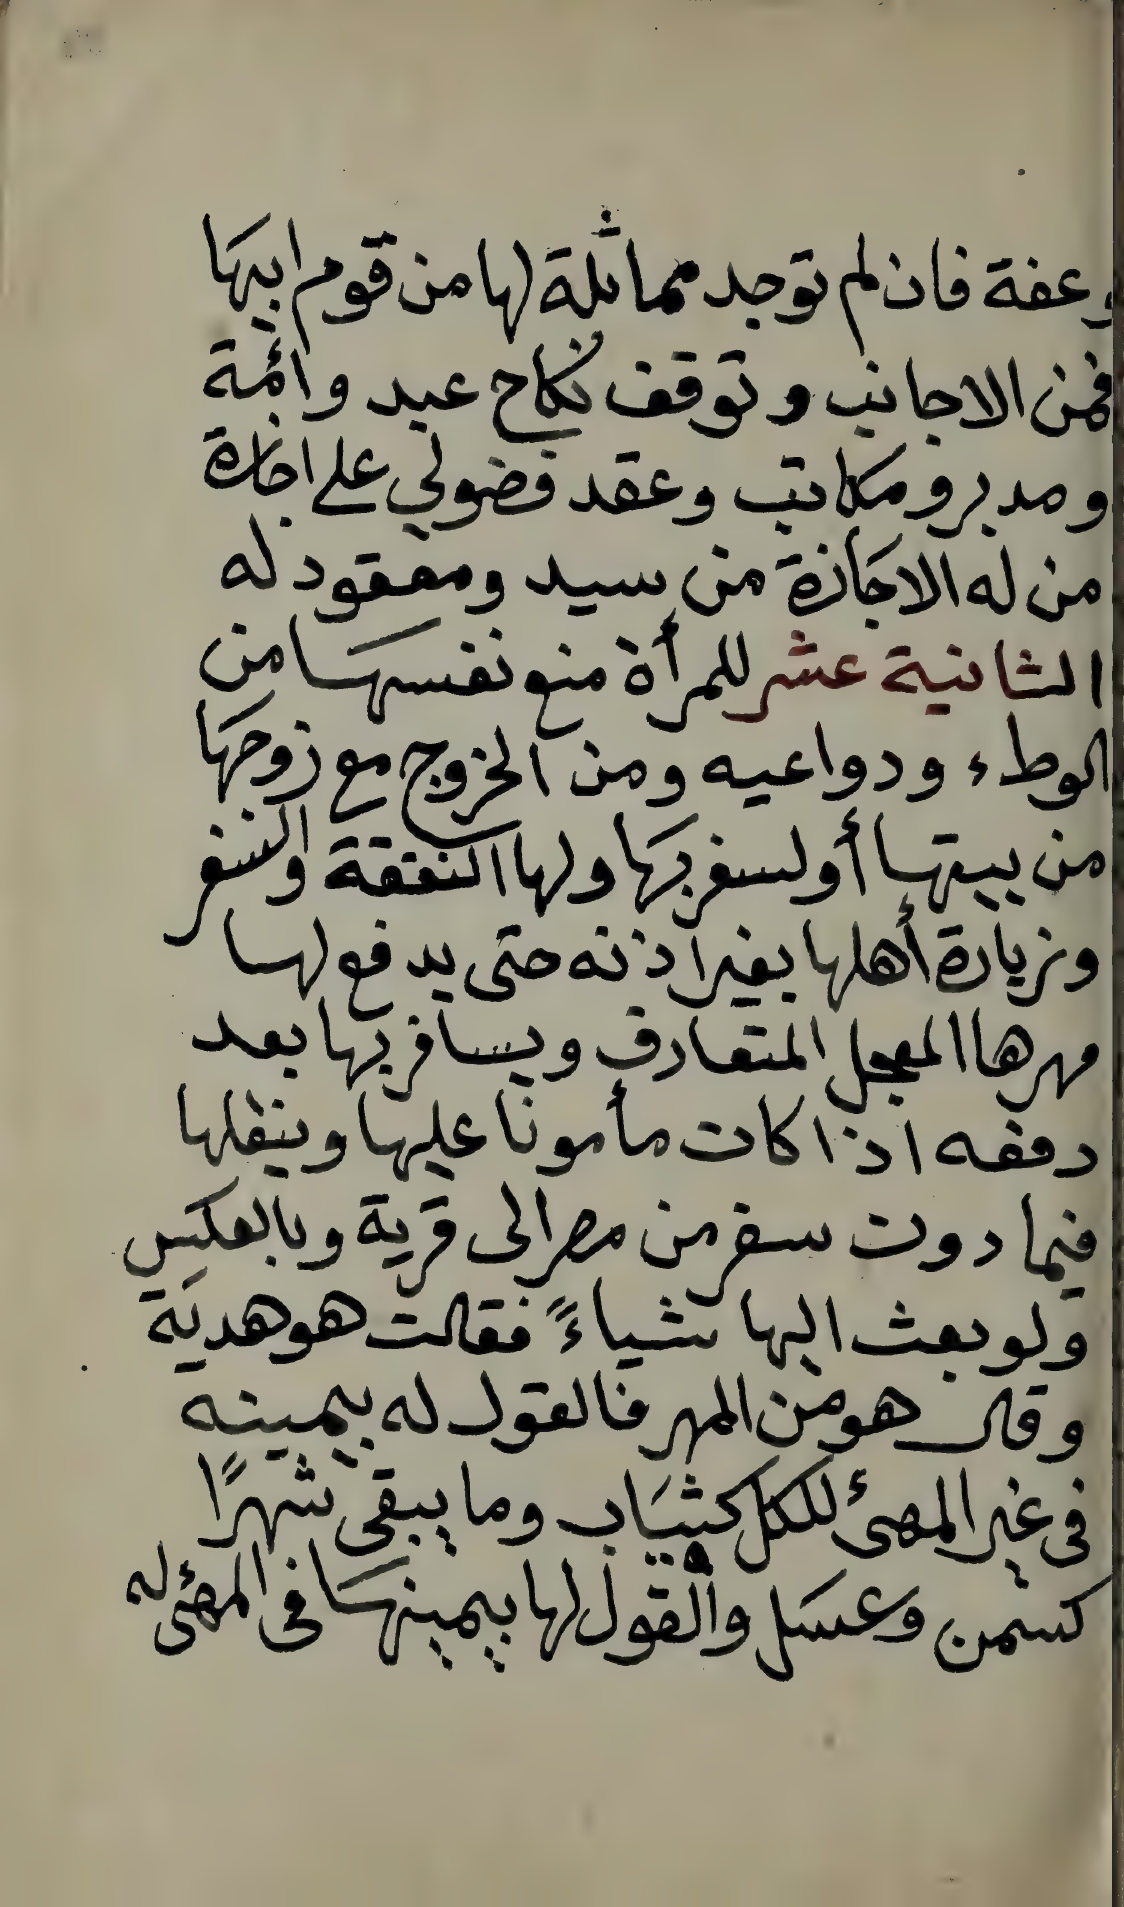 وعفة فان لم توجد مماثلة لها من قوم ابيها
فمن الاجانب وتوقف نكاح عبد وامة
ومدبر ومكاتب وعقد فضولي على اجازة
من له الاجازة من سيد ومعقود له
الثانية عشر للمرأة منع نفسها من
الوطء ودواعيه ومن الخروج مع زوجها
من بيتها أو لسفر بها ولها النفقة والسفر
وزيارة أهلها بغير اذنه حتى يدفع لها
مهرها المعجل المتعارف ويسافر بها بعد
دفعه اذا كان مأمونا عليها وينقلها
فيما دون سفر من مصر الى قرية وبالعكس
ولو بعث اليها شياءً فقالت هو هدية
وقال هو من المهر فالقول له بيمينه
في غير المهيئ للاكل كثياب وما يبقى شهرًا
كسمن وعسل والقول لها بيمينها في المهيئ له